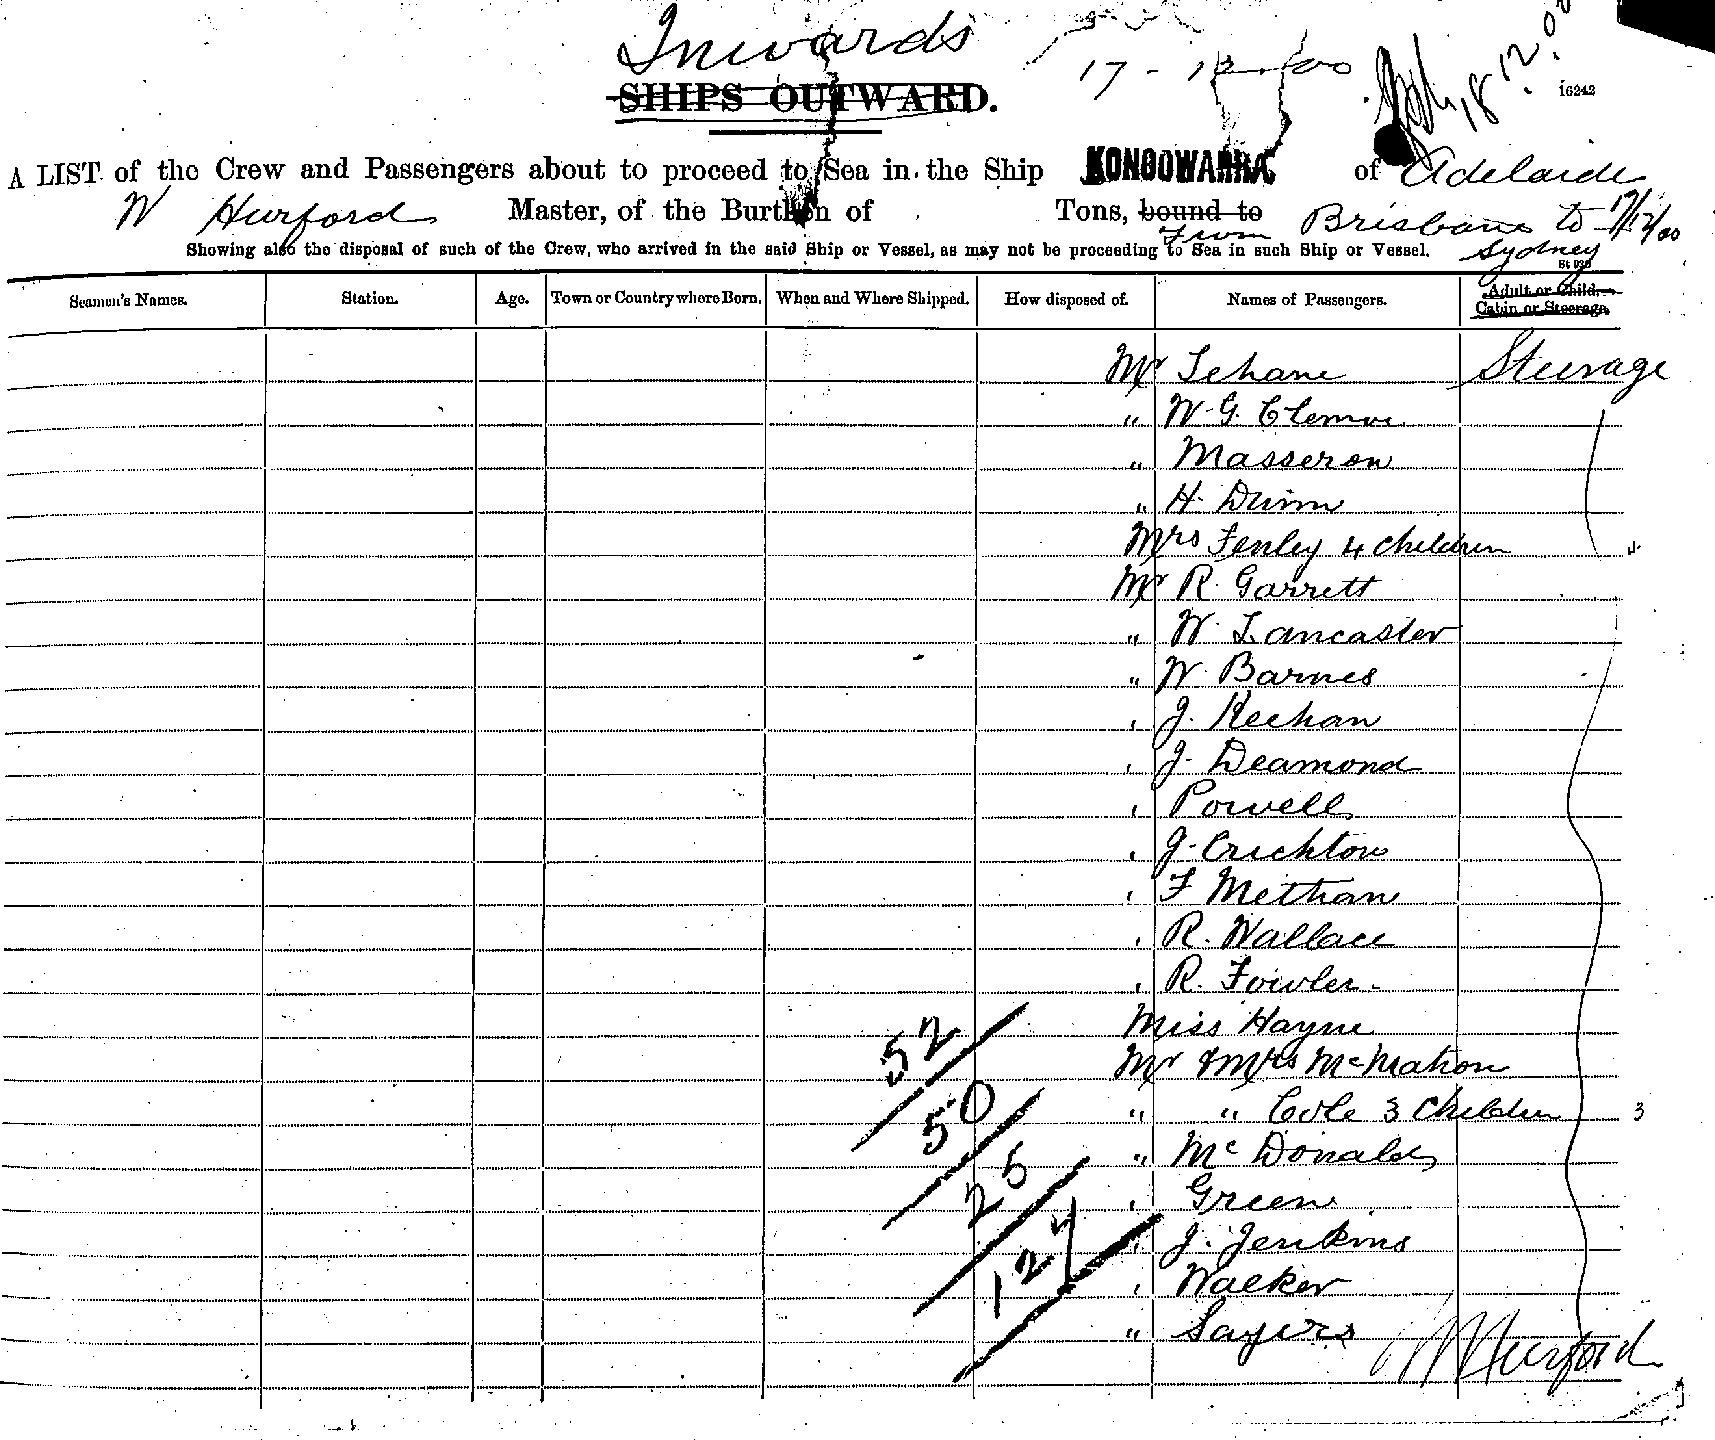 Inwards
SHIPS OUTWARD.
17 - 12 - 00
18.12.00
16242
A LIST of the Crew and Passengers about to proceed to Sea in the Ship KONOOWARRA of Adelaide
W Hurford Master, of the Burthen of Tons, bound to from Brisbane to Sydney 17/12/00
Showing also the disposal of such of the Crew, who arrived in the said Ship or Vessel, as may not be proceeding to Sea in such Ship or Vessel.
Seamen's Names. Station. Age. Town or Country where Born. When and Where Shipped. How disposed of. Names of Passengers. Adult or Child, Cabin or Steerage.
Mr Tehane Steerage
" W. G. Clemoe
" Masseron
" H. Dunn
Mrs Fenley 4 children 4
Mr R. Garrett
" W. Lancaster
" W Barnes
" J. Keehan
" J. Deamond
" Powell
" J. Crichton
" F Methan
" R. Wallace
" R. Fowler
Miss Hayne
Mr & Mrs McMahon
" " Cole 3 children 3
" Mc Donald
" Green
" J. Jenkins
" Walker
" Sayers
52
50
25
127
W Hurford